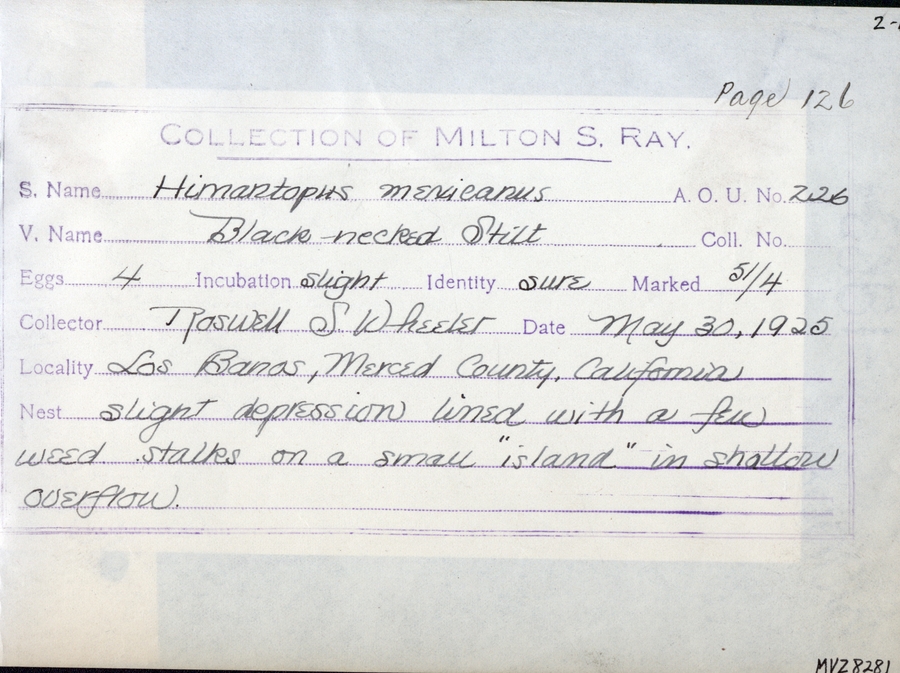 2-
Page 126
COLLECTION OF MILTON S. RAY.
S. Name Himantopus mexicanus A. O. U. No. 226
V. Name Black-necked Stilt Coll. No.
Eggs 4 Incubation slight Identity sure Marked 51/4
Collector Roswell S. Wheeler Date May 30, 1925
Locality Los Banos, Merced County, California
Nest slight depression lined with a few
weed stalks on a small "island" in shallow
overflow.
MVZ8281